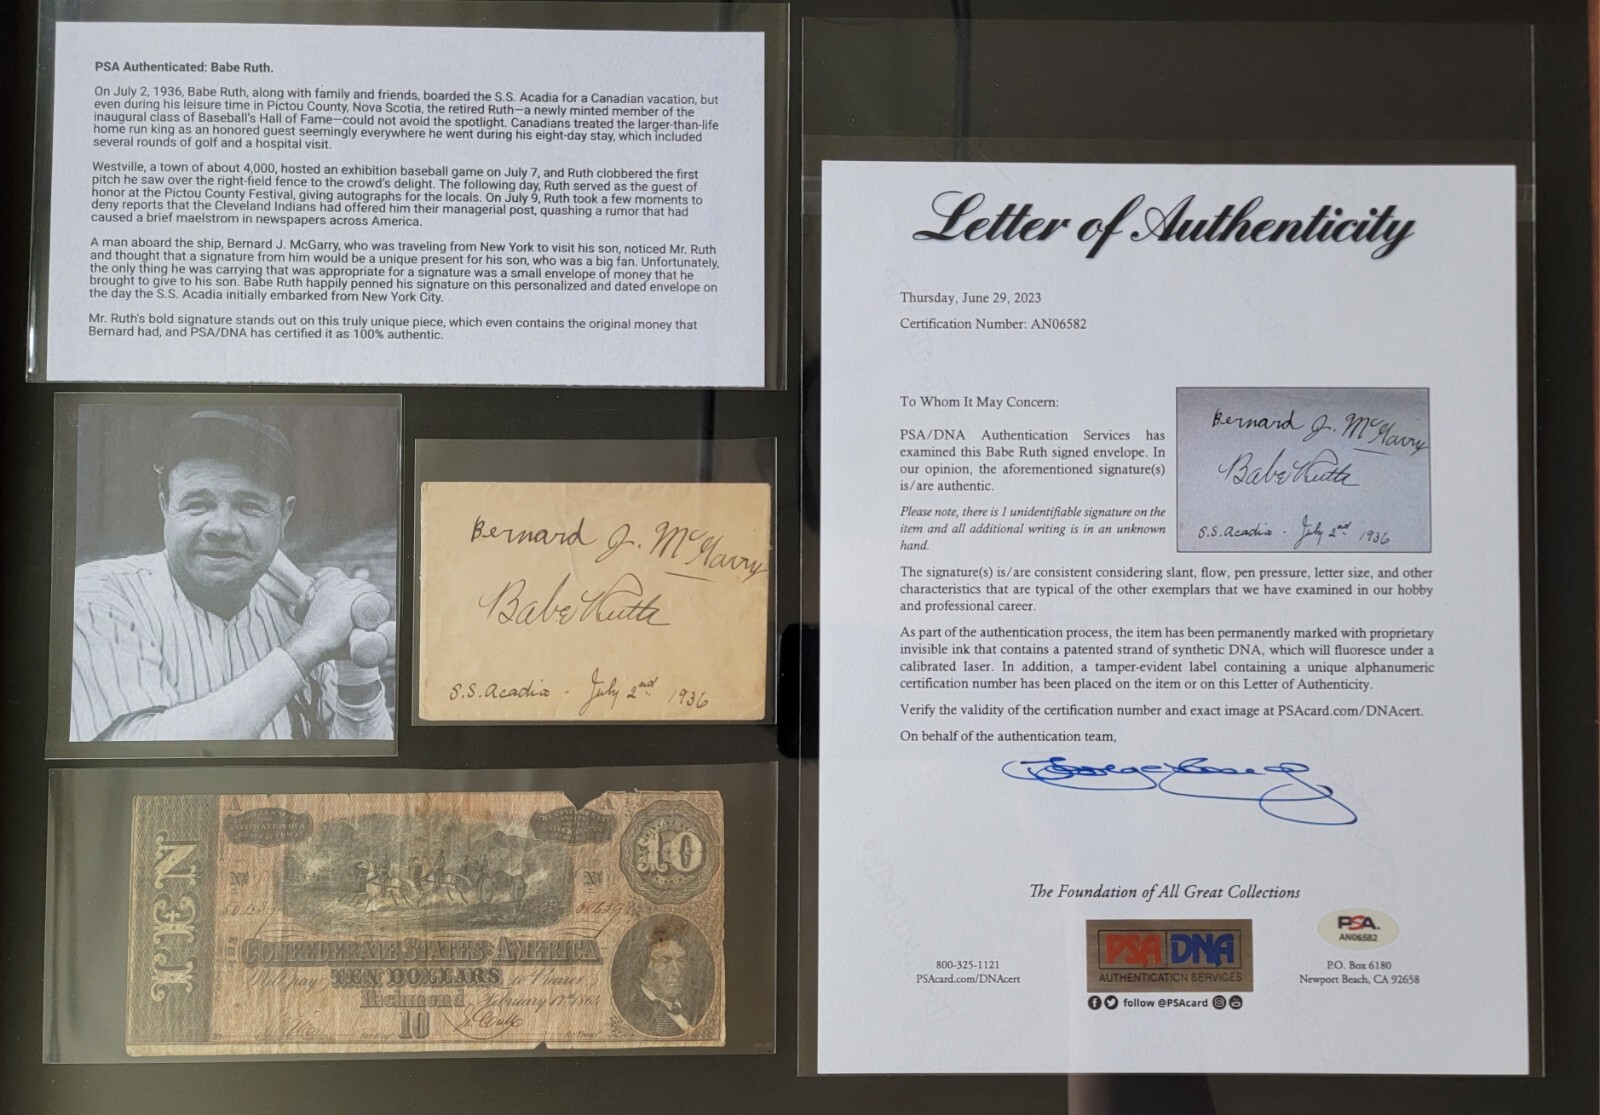 PSA Authenticated: Babe Ruth.
On July 2, 1936, Babe Ruth, along with family and friends, boarded the S.S. Acadia for a Canadian vacation, but
even during his leisure time in Pictou County, Nova Scotia, the retired Ruth—a newly minted member of the
inaugural class of Baseball's Hall of Fame—could not avoid the spotlight. Canadians treated the larger-than-life
home run king as an honored guest seemingly everywhere he went during his eight-day stay, which included
several rounds of golf and a hospital visit.
Westville, a town of about 4,000, hosted an exhibition baseball game on July 7, and Ruth clobbered the first
pitch he saw over the right-field fence to the crowd's delight. The following day, Ruth served as the guest of
honor at the Pictou County Festival, giving autographs for the locals. On July 9, Ruth took a few moments to
deny reports that the Cleveland Indians had offered him their managerial post, quashing a rumor that had
caused a brief maelstrom in newspapers across America.
A man aboard the ship, Bernard J. McGarry, who was traveling from New York to visit his son, noticed Mr. Ruth
and thought that a signature from him would be a unique present for his son, who was a big fan. Unfortunately,
the only thing he was carrying that was appropriate for a signature was a small envelope of money that he
brought to give to his son. Babe Ruth happily penned his signature on this personalized and dated envelope on
the day the S.S. Acadia initially embarked from New York City.
Mr. Ruth's bold signature stands out on this truly unique piece, which even contains the original money that
Bernard had, and PSA/DNA has certified it as 100% authentic.
Bernard J. McGarry
Babe Ruth
S.S. Acadia - July 2nd 1936
TEN
A
A
10
No
No
CONFEDERATE STATES AMERICA
Will pay TEN DOLLARS to Bearer
Richmond February 17th 1864
10
Letter of Authenticity
Thursday, June 29, 2023
Certification Number: AN06582
To Whom It May Concern:
PSA/DNA Authentication Services has
examined this Babe Ruth signed envelope. In
our opinion, the aforementioned signature(s)
is/are authentic.
Please note, there is 1 unidentifiable signature on the
item and all additional writing is in an unknown
hand.
Bernard J. McGarry
Babe Ruth
S.S. Acadia - July 2nd 1936
The signature(s) is/are consistent considering slant, flow, pen pressure, letter size, and other
characteristics that are typical of the other exemplars that we have examined in our hobby
and professional career.
As part of the authentication process, the item has been permanently marked with proprietary
invisible ink that contains a patented strand of synthetic DNA, which will fluoresce under a
calibrated laser. In addition, a tamper-evident label containing a unique alphanumeric
certification number has been placed on the item or on this Letter of Authenticity.
Verify the validity of the certification number and exact image at PSAcard.com/DNAcert.
On behalf of the authentication team,
The Foundation of All Great Collections
800-325-1121
PSAcard.com/DNAcert
PSA DNA
AUTHENTICATION SERVICES
follow @PSAcard
PSA
AN06582
P.O. Box 6180
Newport Beach, CA 92658